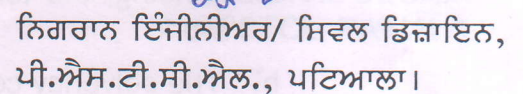 ਨਿਗਰਾਨ ਇੰਜੀਨੀਅਰ/ ਸਿਵਲ ਡਿਜ਼ਾਇਨ,
ਪੀ.ਐਸ.ਟੀ.ਸੀ.ਐਲ., ਪਟਿਆਲਾ।